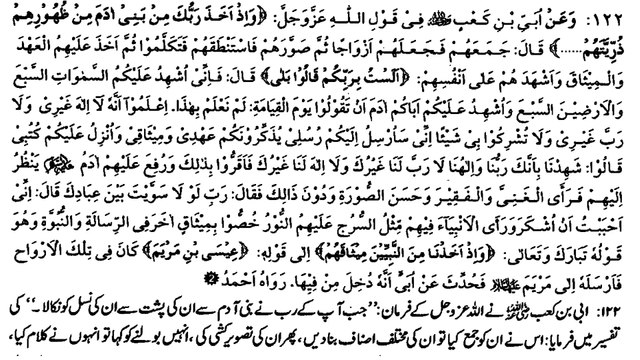 ١٢٢: وَعَنْ اُبَيِّ بْنِ كَعْبٍ ﷺ فِیْ قَوْلِ اللّٰهِ عَزَّوَجَلَّ: ﴿وَاِذْ اَخَذَ رَبُّكَ مِنْ بَنِیْ اٰدَمَ مِنْ ظُهُوْرِهِمْ
ذُرِّيَّتَهُمْ ......﴾ قَالَ: جَمَعَهُمْ فَجَعَلَهُمْ اَزْوَاجًا ثُمَّ صَوَّرَهُمْ فَاسْتَنْطَقَهُمْ فَتَكَلَّمُوْا ثُمَّ اَخَذَ عَلَيْهِمُ الْعَهْدَ
وَالْمِيْثَاقَ وَاَشْهَدَ هُمْ عَلٰی اَنْفُسِهِمْ: ﴿اَلَسْتُ بِرَبِّكُمْ قَالُوْا بَلٰی﴾ قَالَ: فَاِنِّیْ اُشْهِدُ عَلَيْكُمُ السَّمٰوَاتِ السَّبْعَ
وَالْاَرْضِيْنَ السَّبْعَ وَاُشْهِدُ عَلَيْكُمْ اَبَاكُمْ اٰدَمَ اَنْ تَقُوْلُوْا يَوْمَ الْقِيَامَةِ: لَمْ نَعْلَمْ بِهٰذَا. اِعْلَمُوْا اَنَّهٗ لَا اِلٰهَ غَيْرِیْ وَلَا
رَبَّ غَيْرِیْ وَلَا تُشْرِكُوْا بِیْ شَيْئًا اِنِّیْ سَاُرْسِلُ اِلَيْكُمْ رُسُلِیْ يُذَكِّرُوْنَكُمْ عَهْدِیْ وَمِيْثَاقِیْ وَاُنْزِلُ عَلَيْكُمْ كُتُبِیْ
قَالُوْا: شَهِدْنَا بِاَنَّكَ رَبُّنَا وَاِلٰهُنَا لَا رَبَّ لَنَا غَيْرُكَ وَلَا اِلٰهَ لَنَا غَيْرُكَ فَاَقَرُّوْا بِذٰلِكَ وَرُفِعَ عَلَيْهِمْ اٰدَمُ يَنْظُرُ
اِلَيْهِمْ فَرَاَی الْغَنِیَّ وَالْفَقِيْرَ وَحَسَنَ الصُّوْرَةِ وَدُوْنَ ذَالِكَ فَقَالَ: رَبِّ لَوْ لَا سَوَّيْتَ بَيْنَ عِبَادِكَ قَالَ: اِنِّیْ
اَحْبَبْتُ اَنْ اُشْكَرَ وَرَاَی الْاَنْبِيَآءَ فِيْهِمْ مِثْلَ السُّرُجِ عَلَيْهِمُ النُّوْرُ خُصُّوْا بِمِيْثَاقٍ اٰخَرَ فِی الرِّسَالَةِ وَالنُّبُوَّةِ وَهُوَ
قَوْلُهٗ تَبَارَكَ وَتَعَالٰی: ﴿وَاِذْ اَخَذْنَا مِنَ النَّبِيِّيْنَ مِيْثَاقَهُمْ﴾ اِلٰی قَوْلِهٖ: ﴿عِيْسَی بْنِ مَرْيَمَ﴾ كَانَ فِیْ تِلْكَ الْاَرْوَاحِ
فَاَرْسَلَهٗ اِلٰی مَرْيَمَ فَحُدِّثَ عَنْ اُبَیٍّ اَنَّهٗ دُخِلَ مِنْ فِيْهَا. رَوَاهُ اَحْمَدُ
۱۲۲: ابی بن کعب نے اللہ عزوجل کے فرمان: ”جب آپ کے رب نے بنی آدم سے ان کی پشت سے ان کی نسل کو نکالا۔“ کی
تفسیر میں فرمایا: اس نے ان کو جمع کیا تو ان کی مختلف اصناف بنا دیں، پھر ان کی تصویر کشی کی، انہیں بولنے کو کہا تو انہوں نے کلام کیا،